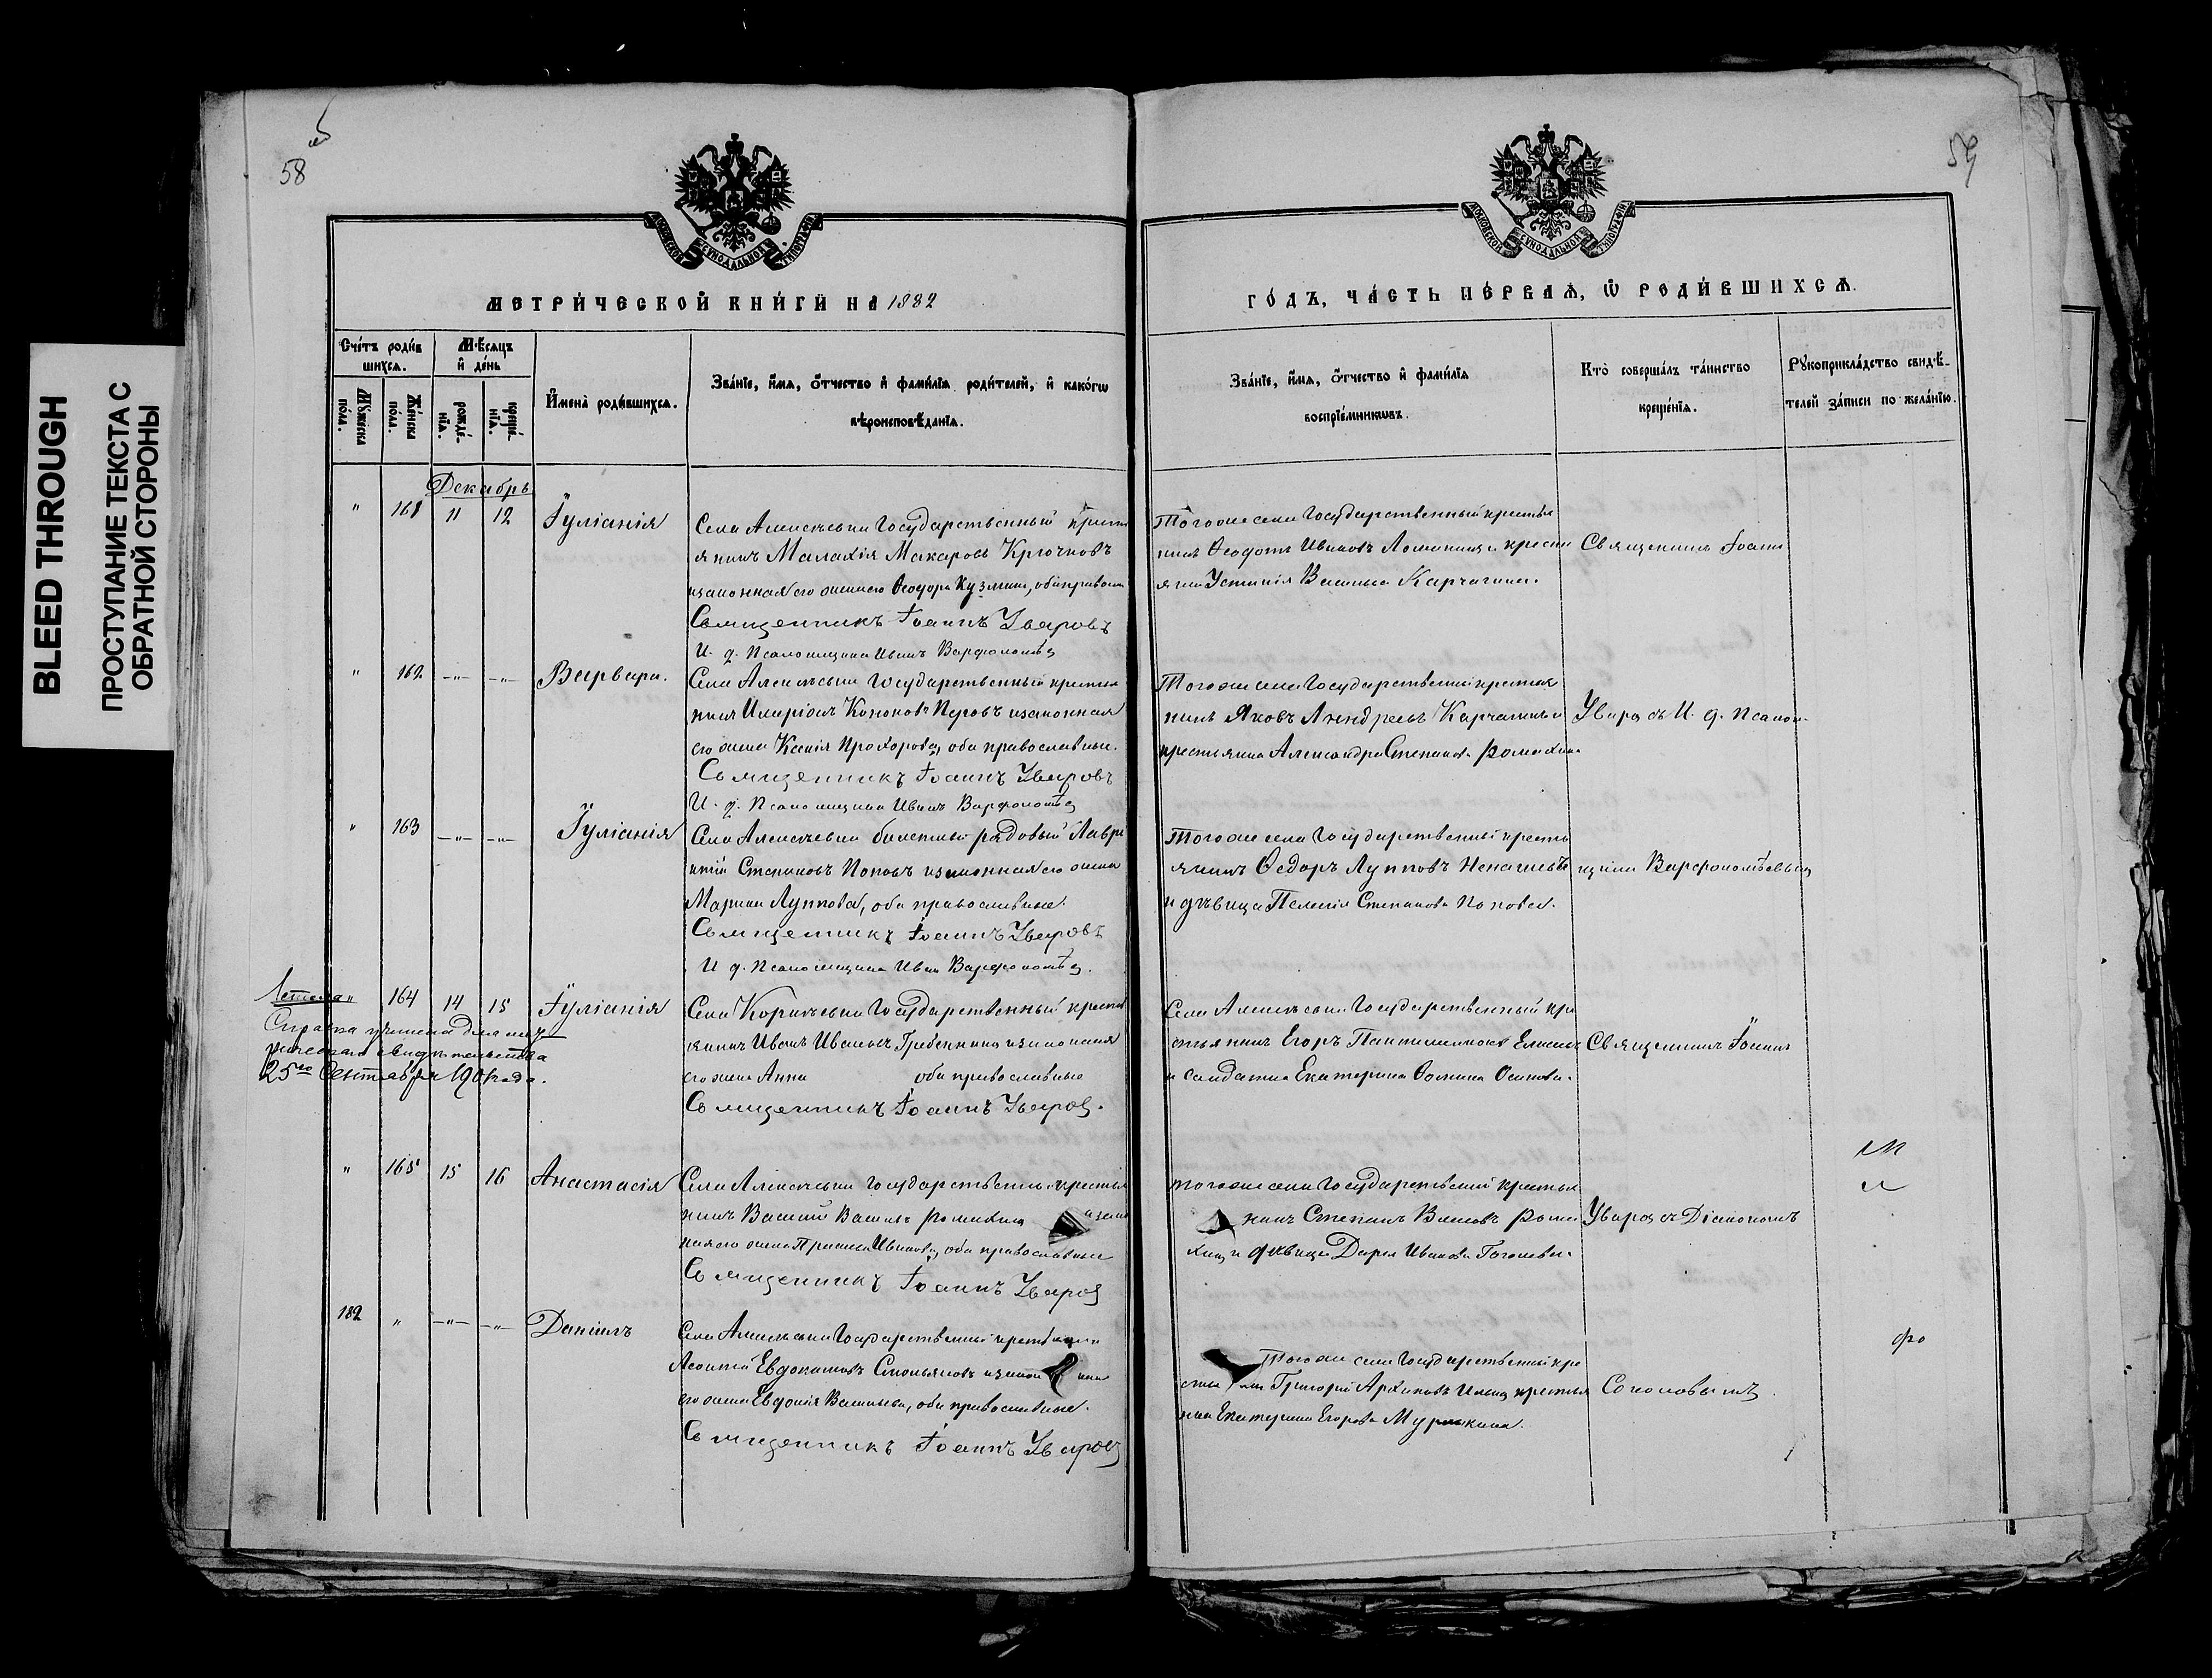 BLEED THROUGH
ПРОСТУПАНИЕ ТЕКСТА С
ОБРАТНОЙ СТОРОНЫ
58
об
МОСКОВСКОЙ СѴНОДАЛЬНОЙ ТИПОГРАФІИ
МЕТРИ́ЧЕСКОЙ КНИ́ГИ НА 1882
Сче́тъ роди́в
шихся.
Мѣ́сяцъ
и҆ де́нь
Му́жеска
по́ла.
Же́нска
по́ла.
рожде́-
нїѧ.
креще́-
нїѧ.
И҆мена̀ роди́вшихсѧ.
Зва́нїе, и҆́мѧ, ѻ҆́тчество и҆ фами́лїѧ роди́телей, и҆ како́гѡ
вѣроисповѣ́данїѧ.
Декабрь
" 161 11 12 Іуліанія
Села Алексѣевки Государственный крестья
янинъ Малахія Макаровъ Крючковъ
и законная его жена Ѳеодора Кузмина, оба правосл
Священникъ Іоаннъ Уваровъ
И. д. Псаломщика Иванъ Варфоломѣевъ
" 162 —"— —"— Варвара.
Села Алексѣевки Государственный крестья
нинъ Иларіонъ Кононовъ и законная
его жена Ксенія Прохорова, оба православные.
Священникъ Іоаннъ Уваровъ
И. д. Псаломщика Иванъ Варфоломѣевъ
" 163 —"— —"— Іуліанія
Села Алексѣевки билетный рядовый Лавре
нтій Степановъ Поповъ и законная его жена
Марина Луппова, оба православные.
Священникъ Іоаннъ Уваровъ
И. д. Псаломщика Иванъ Варфоломѣевъ.
" 164 14 15 Іуліанія
Справка учинена для мет
рическаго свидѣтельства
25го Сентября 190 года.
Села Государственный кресть
янинъ Иванъ Ивановъ Гребенкинъ и законная
его жена Анна оба православные
Священникъ Іоаннъ Уваровъ.
" 165 15 16 Анастасія
Села Алексѣевки Государственный крестья
нинъ Василій Васильевъ Ромахинъ и закон
ная его жена Ивановна, оба православные
Священникъ Іоаннъ Уваровъ
182 " —"— —"— Даніилъ
Села Алексѣевки Государственный крестьянинъ
Леонтій Евдокимовъ Стольяновъ и закон ная
его жена Евдокія Васильева, оба православные.
Священникъ Іоаннъ Уваровъ
59
МОСКОВСКОЙ СѴНОДАЛЬНОЙ ТИПОГРАФІИ
ГО́ДЪ, ЧА́СТЬ ПЕ́РВАѦ, Ѡ҆ РОДИ́ВШИХСѦ.
Зва́нїе, и҆́мѧ, ѻ҆́тчество и҆ фами́лїѧ
воспрїе́мникѡвъ.
Кто̀ соверша́лъ та́инство
креще́нїѧ.
Рꙋкоприкла́дство свидѣ́-
телей за́писи по жела́нїю.
Того же села Государственный крестья
нинъ Ѳеодотъ Ивановъ и кресть
янка Устинія Васильева Карчагина.
Священникъ Іоаннъ
Того же села Государственный крестья
нинъ Яковъ Андреевъ Карчагинъ и
крестьянка Александра Степанова Ромахина
Уваровъ И. д. Псалом-
Того же села Государственный кресть
янинъ Ѳедоръ Лупповъ Ненашевъ
и дѣвица Пелагія Степанова Попова.
щика Варфоломѣевымъ
Села Алексѣевки Государственный кре
стьянинъ Егоръ Пантилимоновъ
и солдатка Екатерина Ѳомина Осипова.
Священникъ Іоаннъ
Того же села Государственный крестья
нинъ Степанъ Ивановъ Рома
хинъ и дѣвица Дарья Иванова Гоголева.
Уваровъ съ Діакономъ
Того же села Государственный кре
стьянинъ Григорій Архиповъ Ильинъ крестья
нка Екатерина Егорова Мурыкина.
Соколовымъ.